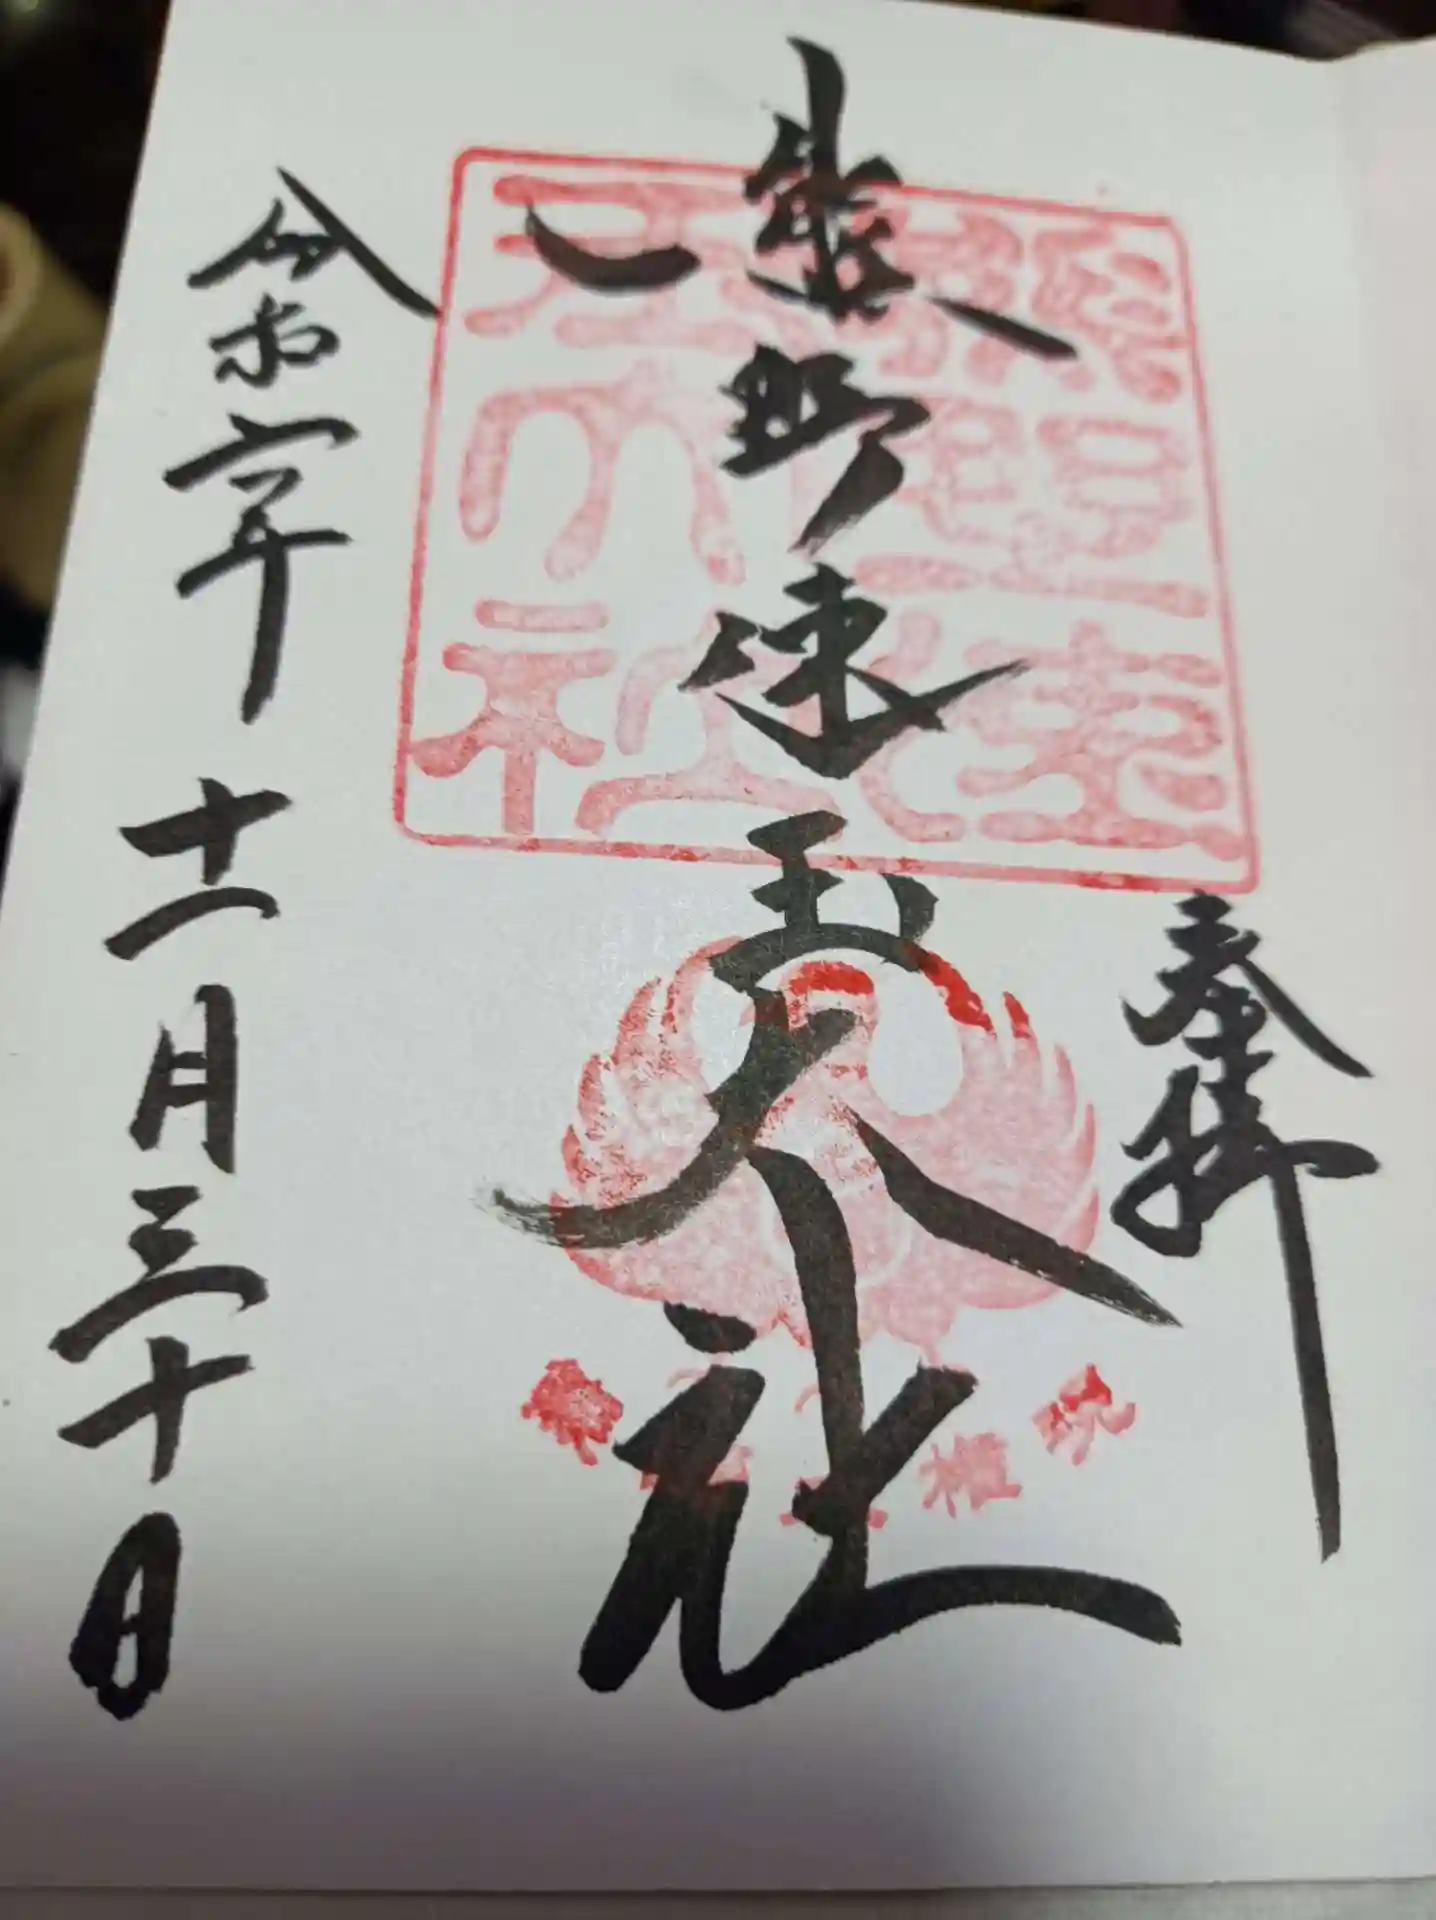 奉拝
熊野速玉大社
令和六年
十一月三十日
熊野速
玉大社
權現